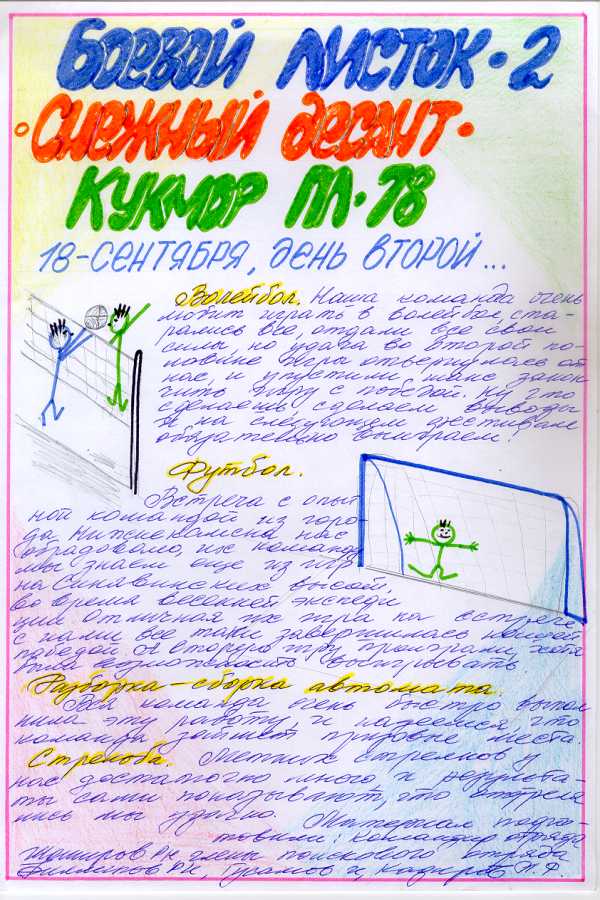 Боевой листок•2
•Снежный десант•
Кукмор ПЛ•78
18-сентября, день второй...
Волейбол. Наша команда очень
любит играть в волейбол, ста-
рались все, отдали все свои
силы, но удача во второй по-
ловине игры отвернулась от
нас, и упустили шанс закон-
чить игру с победой. Ну что
сделаешь, сделаем выводы
и на следующем фестивале
обязательно выиграем!
Футбол.
Встреча с опыт
ной командой из горо-
да Нижнекамска нас
обрадовало, их команду
мы знаем еще из игр
на Синявинских высот,
во время весенней экспеди
ции. Отличная их игра на встрече
с нами все таки завершилась нашей
победой. А вторую игру проиграли, хотя
была возможность выигрывать
Разборка-сборка автомата.
Вся команда очень быстро выпол
нила эту работу, и надеемся, что
команда займет призовые места.
Стрельба. Метких стрелков у
нас достаточно много и результа-
ты сами показывают, что отстреля
лись мы удачно. Материал подго-
товили: командир отряда
члены поискового отряда